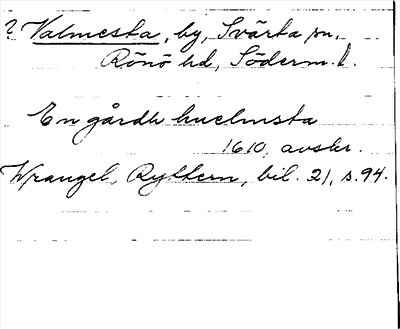 ? Valmesta, by, Svärta sn,
Rönö hd, Söderm. l.
En gårdh huelmsta
1610, avskr.
Wrangel, Ryttern, bil. 21, s. 94.